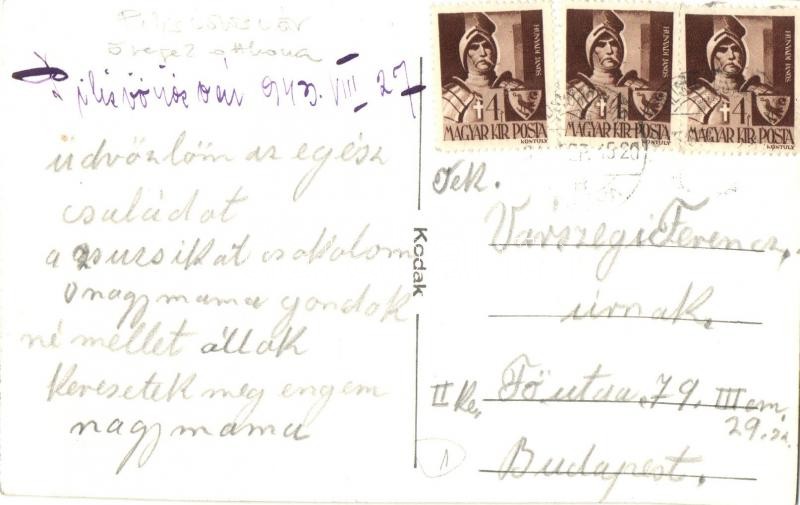 Pilisvörösvár 943. VIII 27
üdvözlöm az egész
családot
a zsuzsikát csokolom
nagymama gondok
né mellet állok
keresetek meg engem
nagymama
Kodak
HUNYADI JÁNOS
4f
MAGYAR KIR. POSTA
KONTULY
HUNYADI JÁNOS
4f
MAGYAR KIR. POSTA
KONTULY
HUNYADI JÁNOS
4f
MAGYAR KIR. POSTA
KONTULY
Tek.
Várszegi Ferencz
úrnak.
II ke. Fő utca 79. III em.
29. sz.
Budapest.
1